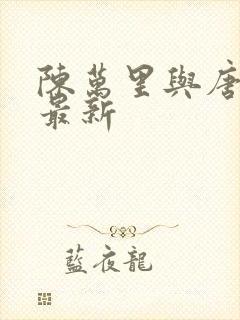 陳萬里與唐
最新
藍夜龍